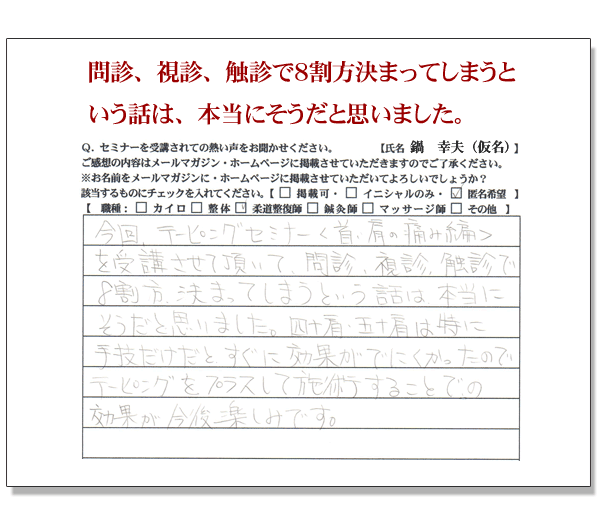 問診、視診、触診で8割方決まってしまうと
いう話は、本当にそうだと思いました。
Q. セミナーを受講されての熱い声をお聞かせください。 【氏名 鍋 幸夫（仮名）】
ご感想の内容はメールマガジン・ホームページに掲載させていただきますのでご了承ください。
※お名前をメールマガジンに・ホームページに掲載させていただいてよろしいでしょうか？
該当するものにチェックを入れてください。【 □ 掲載可・ □ イニシャルのみ・ ☑ 匿名希望 】
【 職種： □ カイロ □ 整体 ☑ 柔道整復師 □ 鍼灸師 □ マッサージ師 □ その他 】
今回、テーピングセミナー＜首・肩の痛み編＞
を受講させて頂いて、問診、視診、触診で
8割方、決まってしまうという話は本当に
そうだと思いました。四十肩・五十肩は特に
手技だけだとすぐに効果がでにくかったので
テーピングをプラスして施術することでの
効果が今後楽しみです。